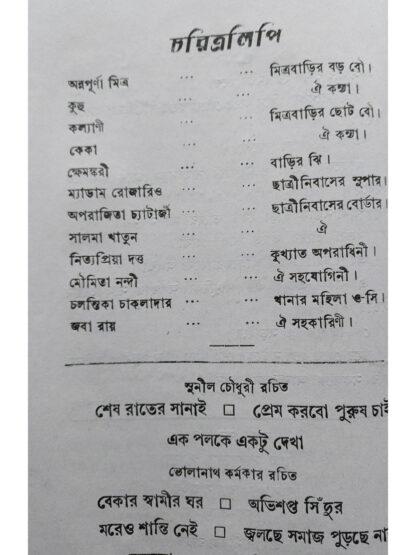 চরিত্রলিপি
অন্নপূর্ণা মিত্র ... ... মিত্রবাড়ির বড় বৌ।
কুহু ... ... ঐ কন্যা।
কল্যাণী ... ... মিত্রবাড়ির ছোট বৌ।
কেকা ... ... ঐ কন্যা।
ক্ষেমঙ্করী ... ... বাড়ির ঝি।
ম্যাডাম রোজারিও ... ... ছাত্রীনিবাসের সুপার।
অপরাজিতা চ্যাটার্জী ... ... ছাত্রীনিবাসের বোর্ডার।
সালমা খাতুন ... ... ঐ
নিত্যপ্রিয়া দত্ত ... ... কুখ্যাত অপরাধিনী।
মৌমিতা নন্দী ... ... ঐ সহযোগিনী।
চলন্তিকা চাকলাদার ... ... থানার মহিলা ও-সি।
জবা রায় ... ... ঐ সহকারিণী।
সুনীল চৌধুরী রচিত
শেষ রাতের সানাই □ প্রেম করবো পুরুষ চাই
এক পলকে একটু দেখা
ভোলানাথ কর্মকার রচিত
বেকার স্বামীর ঘর □ অভিশপ্ত সিঁদুর
মরেও শান্তি নেই □ জ্বলছে সমাজ পুড়ছে না